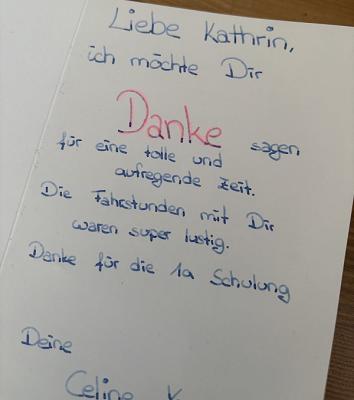 Liebe Kathrin,
ich möchte Dir
Danke sagen
für eine tolle und
aufregende Zeit.
Die Fahrstunden mit Dir
waren super lustig.
Danke für die 1a Schulung
Deine
Celine K